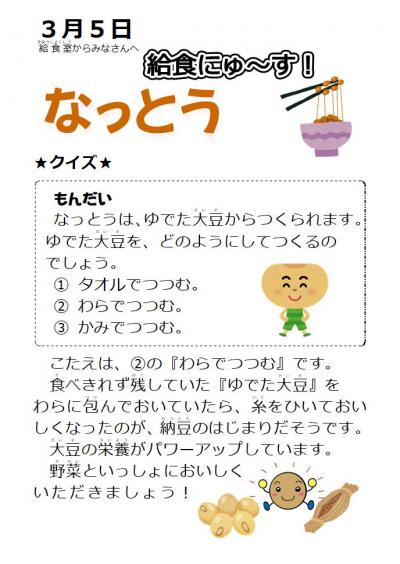 ３月５日
給食室からみなさんへ
給食にゅ～す！
なっとう
★クイズ★
もんだい
なっとうは、ゆでた大豆からつくられます。
ゆでた大豆を、どのようにしてつくるの
でしょう。
① タオルでつつむ。
② わらでつつむ。
③ かみでつつむ。
こたえは、②の『わらでつつむ』です。
食べきれず残していた『ゆでた大豆』を
わらに包んでおいていたら、糸をひいておい
しくなったのが、納豆のはじまりだそうです。
大豆の栄養がパワーアップしています。
野菜といっしょにおいしく
いただきましょう！